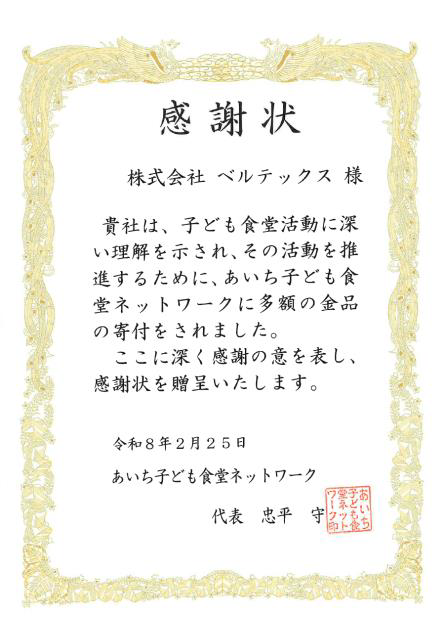 感謝状
株式会社 ベルテックス 様
貴社は、子ども食堂活動に深
い理解を示され、その活動を推
進するために、あいち子ども食
堂ネットワークに多額の金品
の寄付をされました。
ここに深く感謝の意を表し、
感謝状を贈呈いたします。
令和8年2月25日
あいち子ども食堂ネットワーク
代表 忠平 守
あいち
子ども食
堂ネット
ワーク印